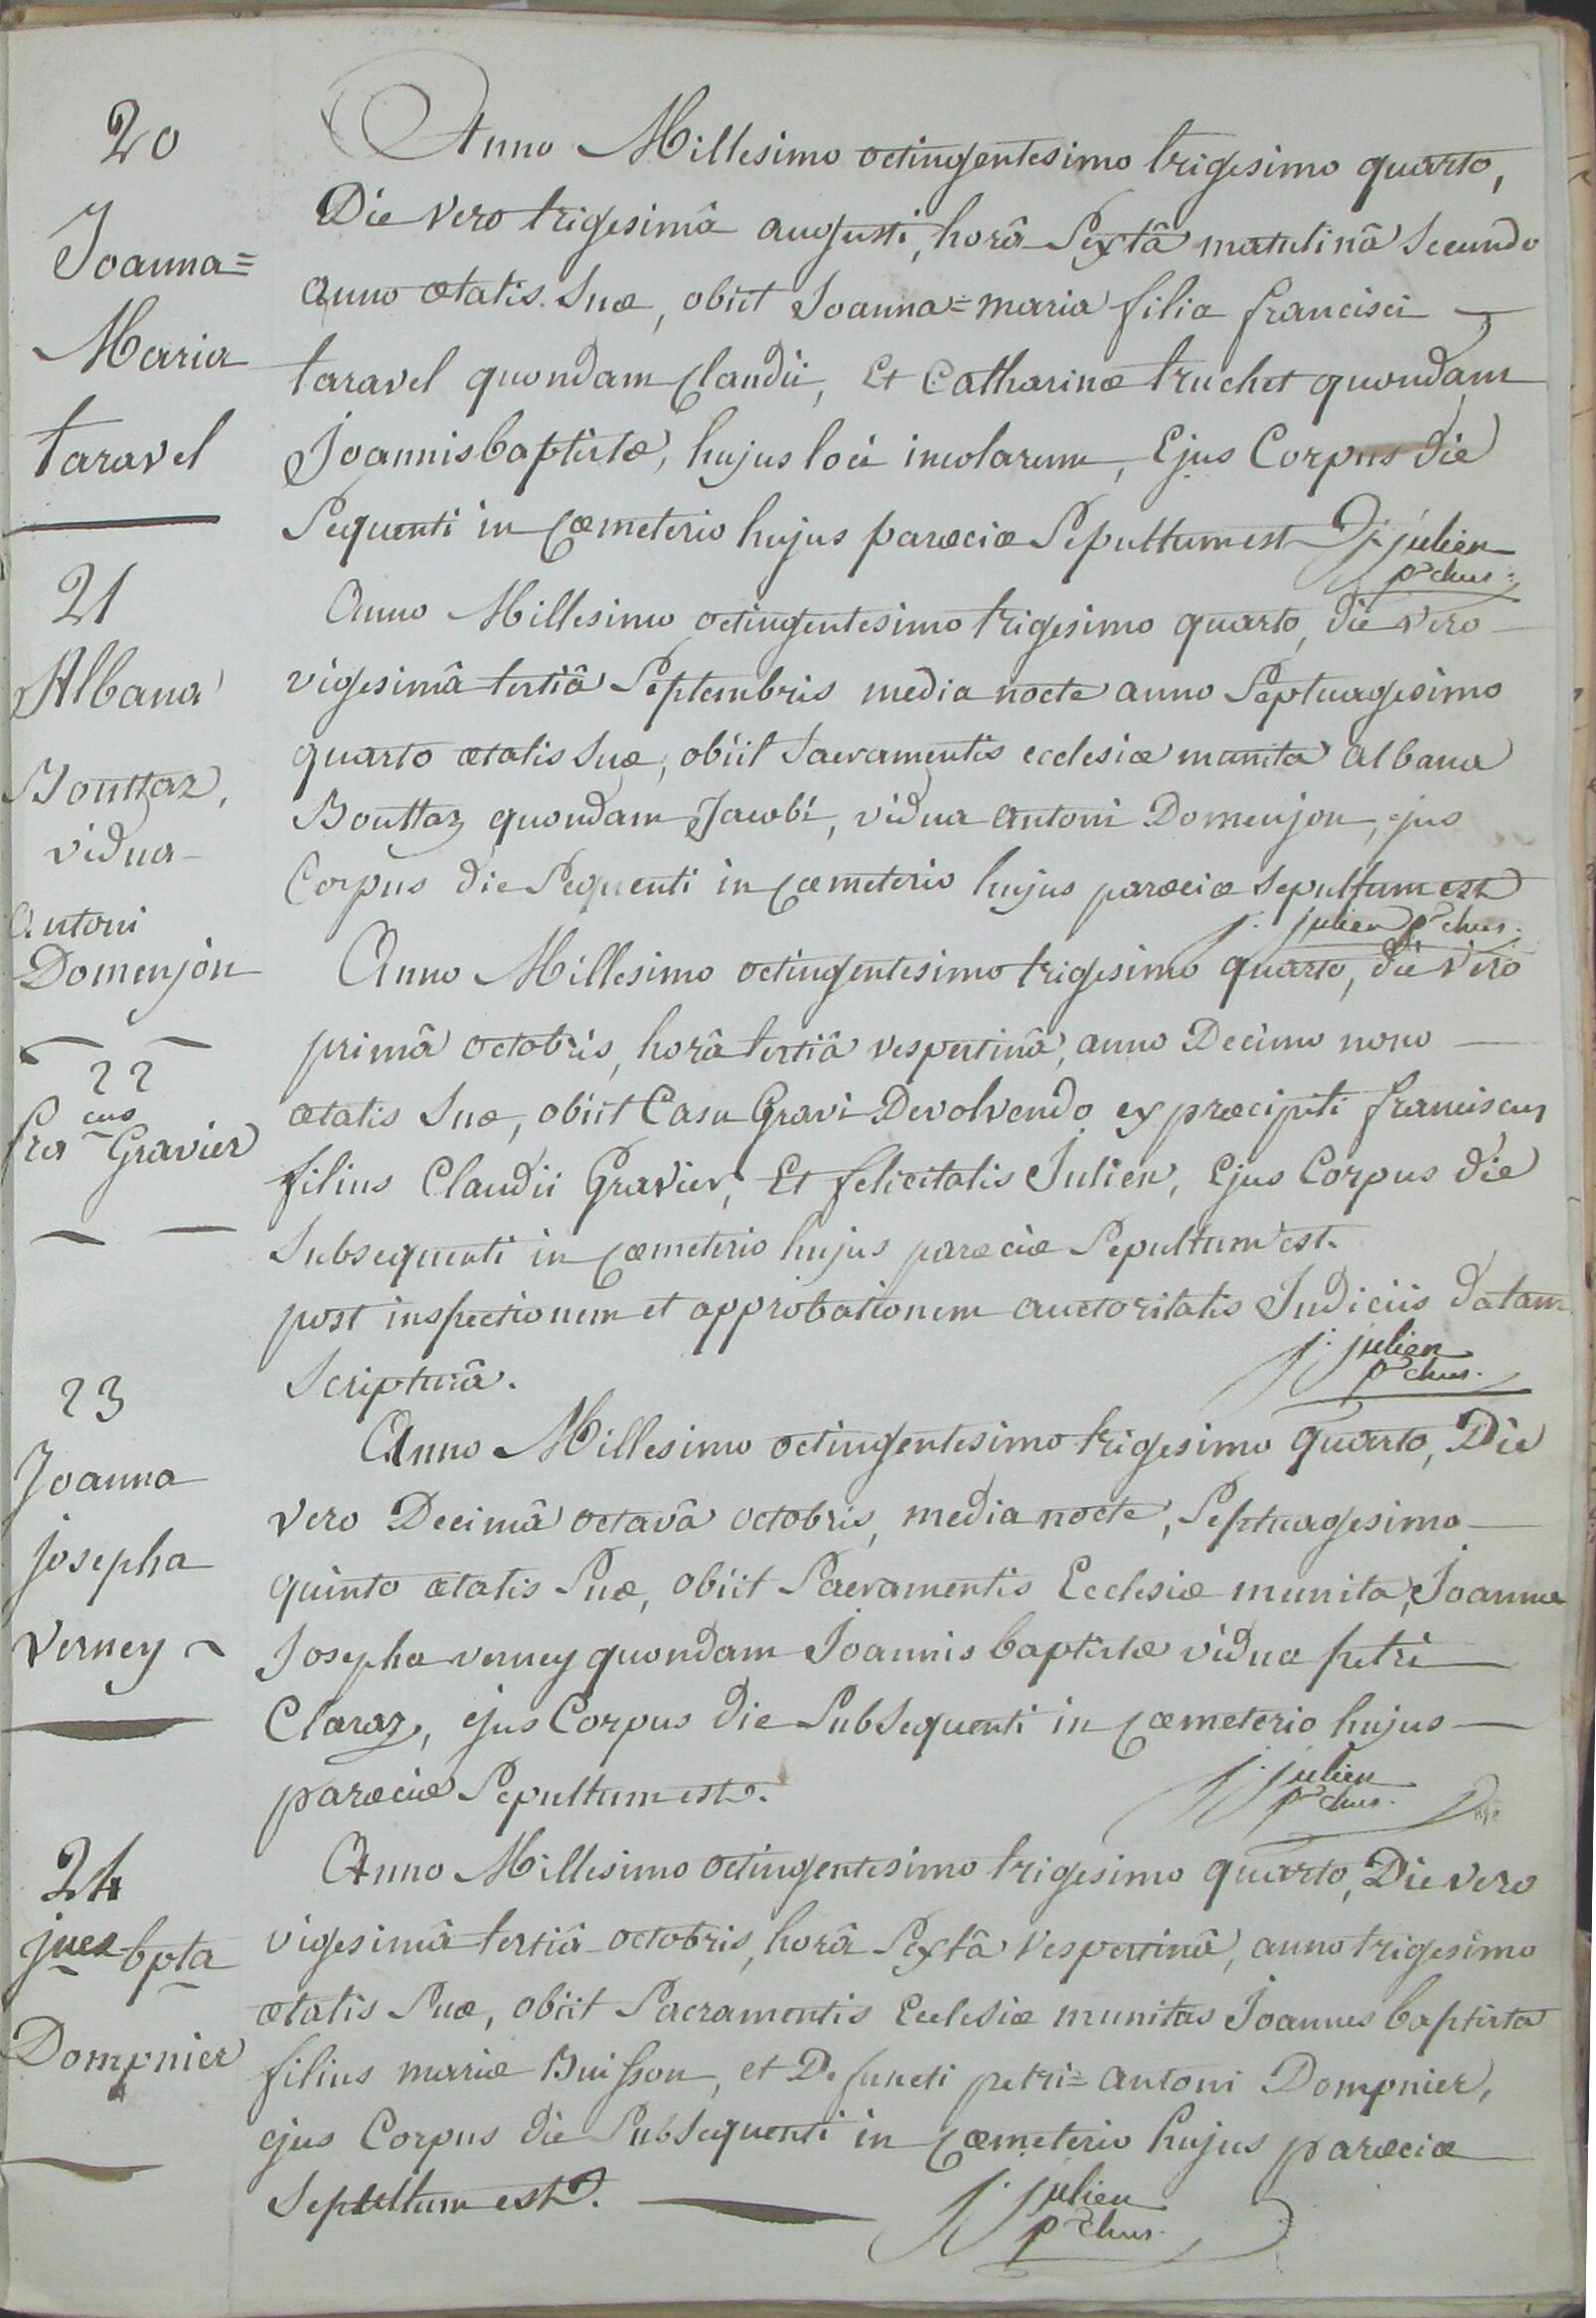 20
Joanna=
Maria
taravel
Anno Millesimo octingentesimo trigesimo quarto,
Die vero trigesimâ augusti, horâ Sextâ matutinâ Secundo
anno ætatis Suæ, obiit Joanna=maria filia francisci
taravel quondam Claudii, Et Catharinæ truchet quondam
Joannisbaptistæ, hujus loci incolarum, Ejus Corpus die
Sequenti in Cœmeterio hujus parœciæ Sepultum est J. julien
pchus.
21
Albana
Bouttaz,
vidua
Antoni
Domenjon
Anno Millesimo octingentesimo trigesimo quarto, die vero
vigesimâ tertiâ Septembris media nocte anno Septuagesimo
quarto ætatis Suæ, obiit Sacramentis ecclesiæ munita albana
Bouttaz quondam Jacobi, vidua antoni Domenjon, ejus
Corpus die Sequenti in Cœmeterio hujus parœciæ Sepultum est
j. julien pchus.
22
fracus Gravier
Anno Millesimo octingentesimo trigesimo quarto, die vero
primâ octobris, horâ tertiâ vespertinâ, anno Decimo nono
ætatis Suæ, obiit Casu Gravi Devolvendo ex præcipiti franciscus
filius Claudii Gravier, Et felicitatis Julien, Ejus Corpus die
Subsequenti in Cœmeterio hujus parœciæ Sepultum est.
post inspectionem et approbationem auctoritatis Judiciis datam
Scripturâ.
j. julien
pchus.
23
Joanna
josepha
Verney
Anno Millesimo octingentesimo trigesimo quarto, Die
vero Decimâ octavâ octobris, media nocte, Septuagesimo
quinto ætatis Suæ, obiit Sacramentis Ecclesiæ munita, Joanna
Josepha verney quondam Joannis baptistæ vidua petri
Claraz, ejus Corpus die Subsequenti in Cœmeterio hujus
parœciæ Sepultum est.
j. julien
pchus.
24
jnes bpta
Dompnier
Anno Millesimo octingentesimo trigesimo quarto, Die vero
vigesimâ tertiâ octobris, horâ Sextâ Vespertinâ, anno trigesimo
ætatis Suæ, obiit Sacramentis Ecclesiæ munitus Joannes baptista
filius mariæ Buisson, et Defuncti petri=antoni Dompnier,
ejus Corpus die Subsequenti in Cœmeterio hujus parœciæ
Sepultum est.
j. julien
pchus.